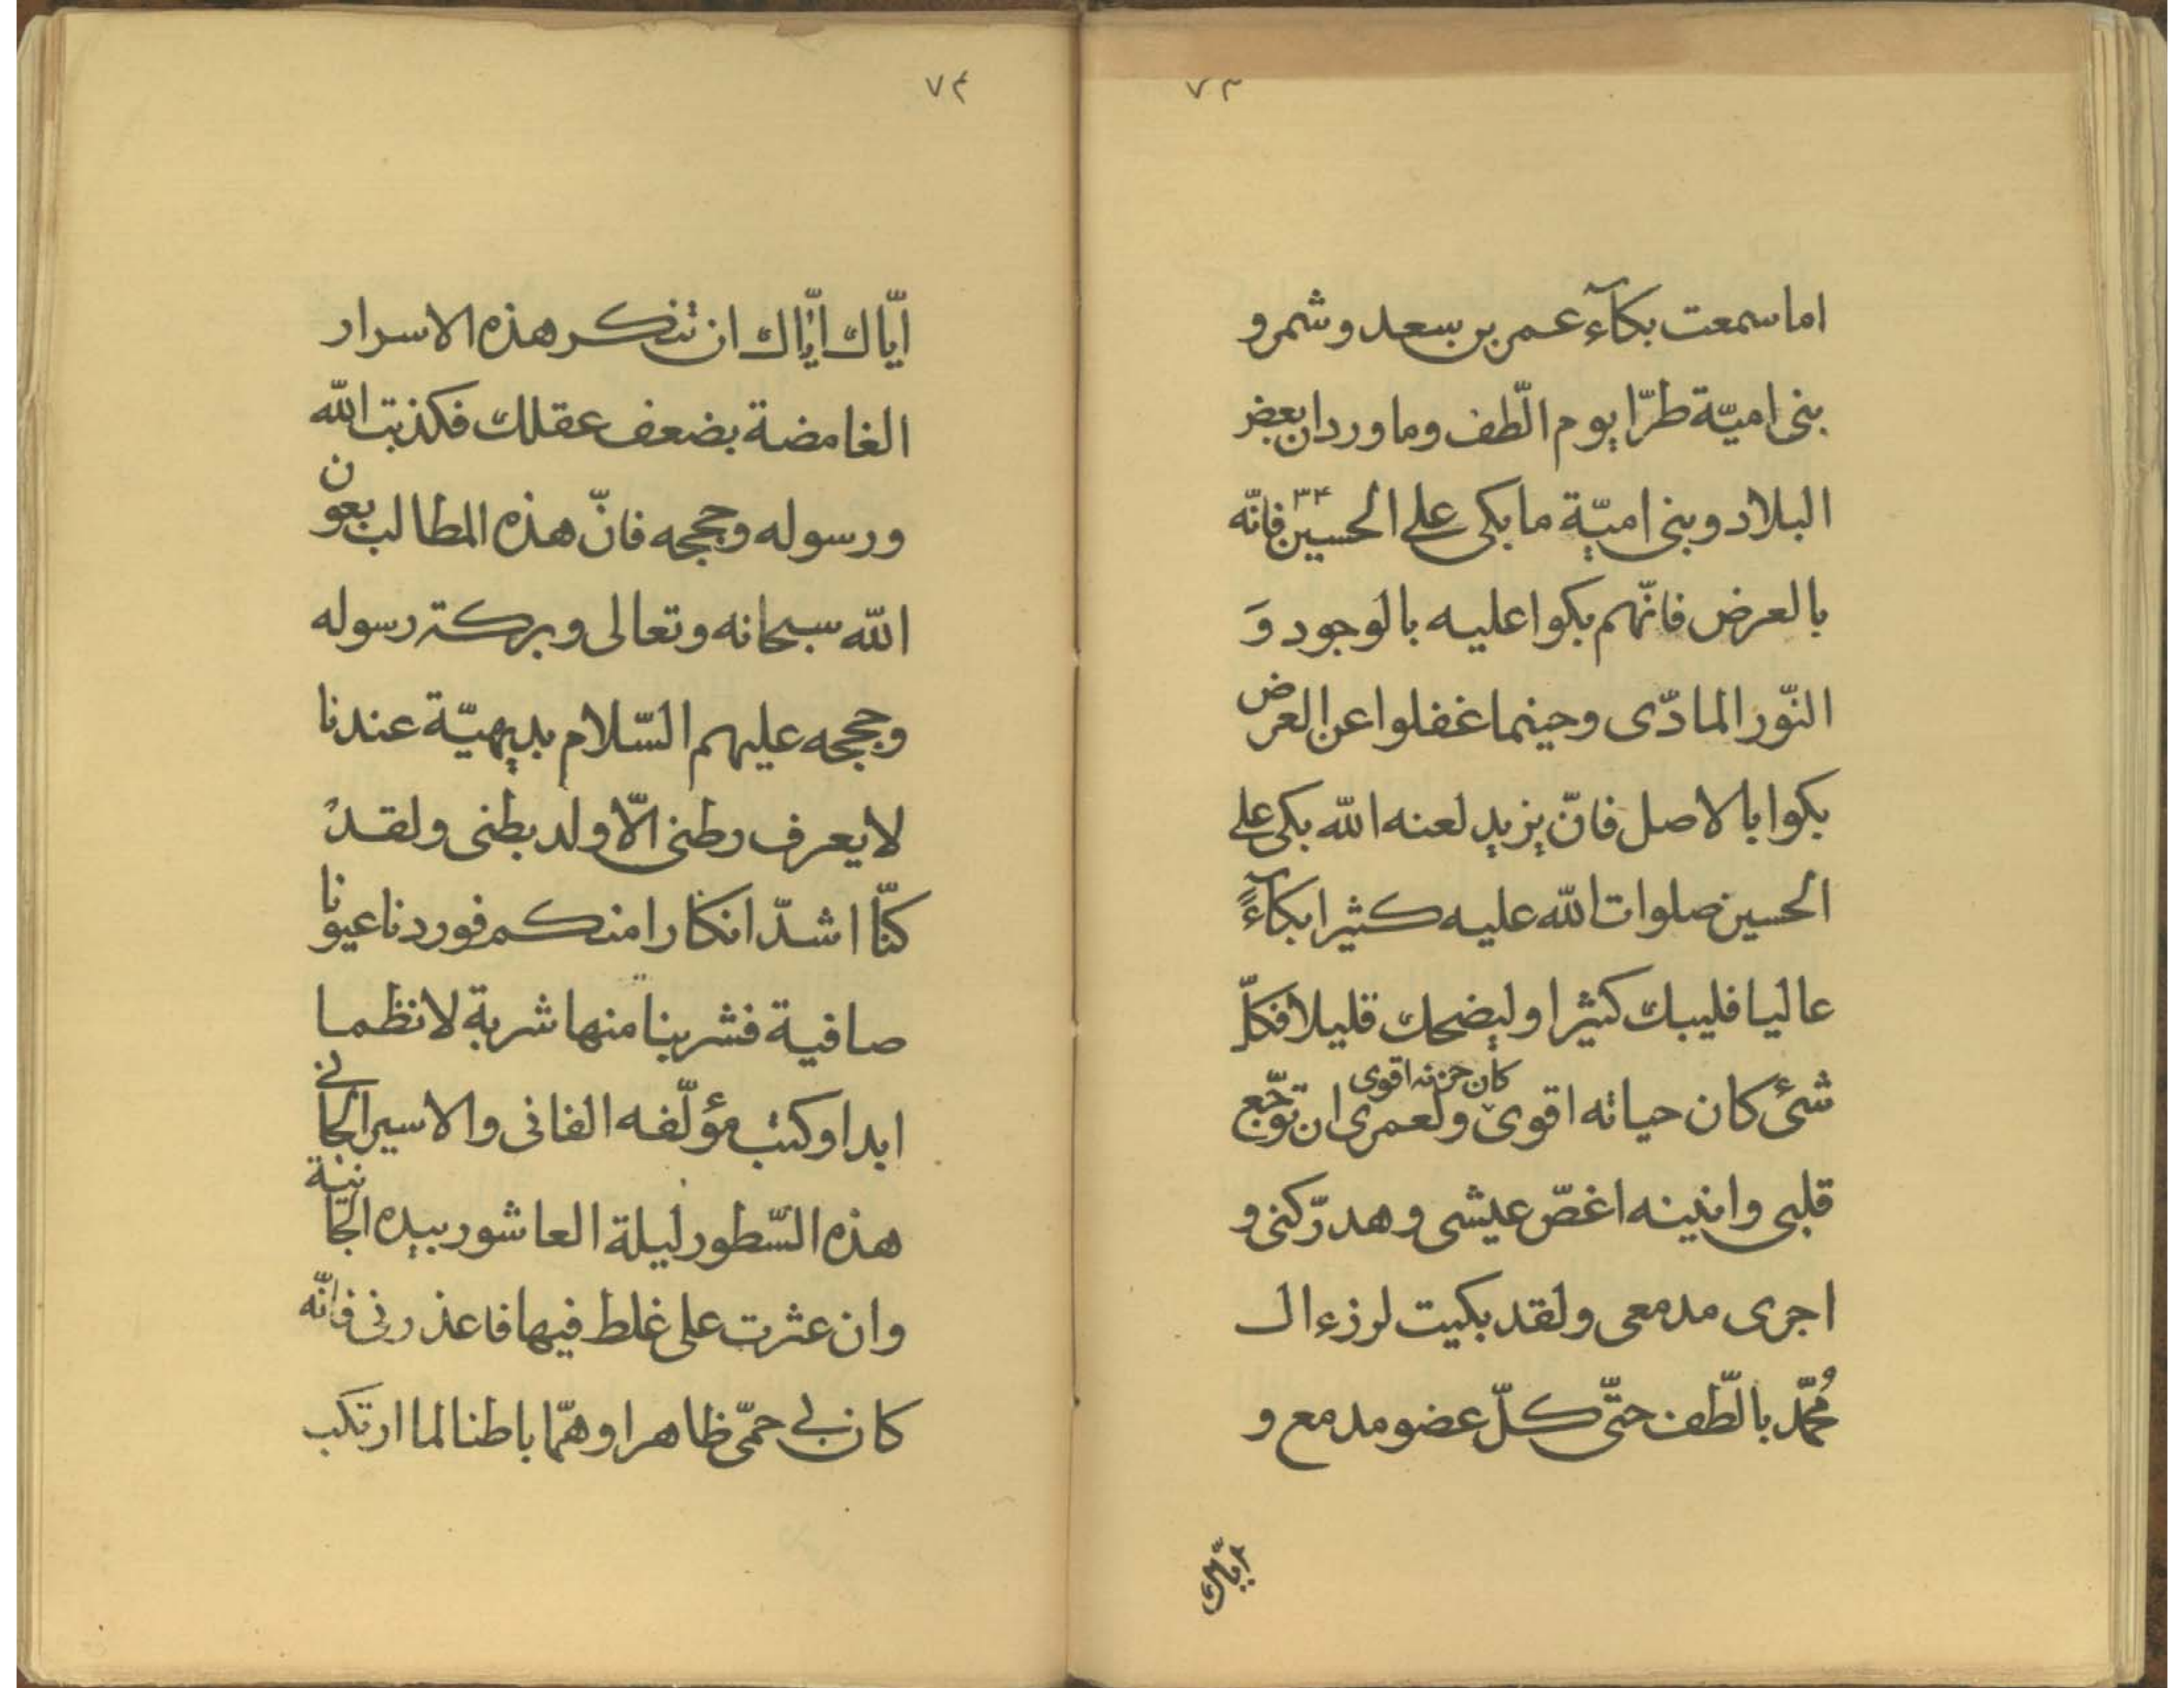 ۷۳
اما سمعت بكآء عمر بن سعد و شمر و
بنى اميّة طرّا يوم الطّف وما ورد ان بعض
البلاد و بنى اميّة ما بكى على الحسين فانّه
بالعرض فانّهم بكوا عليه بالوجود وَ
النّور المادّى وحينما غفلوا عن العرض
بكوا بالاصل فانّ يزيد لعنه الله بكى على
الحسين صلوات الله عليه كثيرا بكآءً
عاليا فليبك كثيرا وليضحك قليلا فكلّ
شئ كان حياته اقوى كان حزنه اقوى ولعمرى ان توجّع
قلبى وانينه اغصّ عيشى و هدّ ركنى و
اجرى مدمعى ولقد بكيت لرزء ال
مُحمّد بالطّف حتّى كلّ عضو مدمع و
۷۴
ايّاك ايّاك ان تنكر هذه الاسرار
الغامضة بضعف عقلك فكذبت الله
ورسوله وحججه فانّ هذه المطالب بعون
الله سبحانه وتعالى وبركة رسوله
وحججه عليهم السّلام بديهيّة عندنا
لا يعرف رطنى الّا ولد بطنى ولقد
كنّا اشدّ انكارا منكم فوردنا عيونا
صافية فشربنا منها شربة لا نظما
ابدا و كتب مؤلّفه الفانى والاسير الجانى
هذه السّطور ليلة العاشور بيده الجانية
وان عثرت على غلط فيها فاعذرنى فانّه
كان بى حمّى ظاهرا وهمّا باطنا لما ارتكب